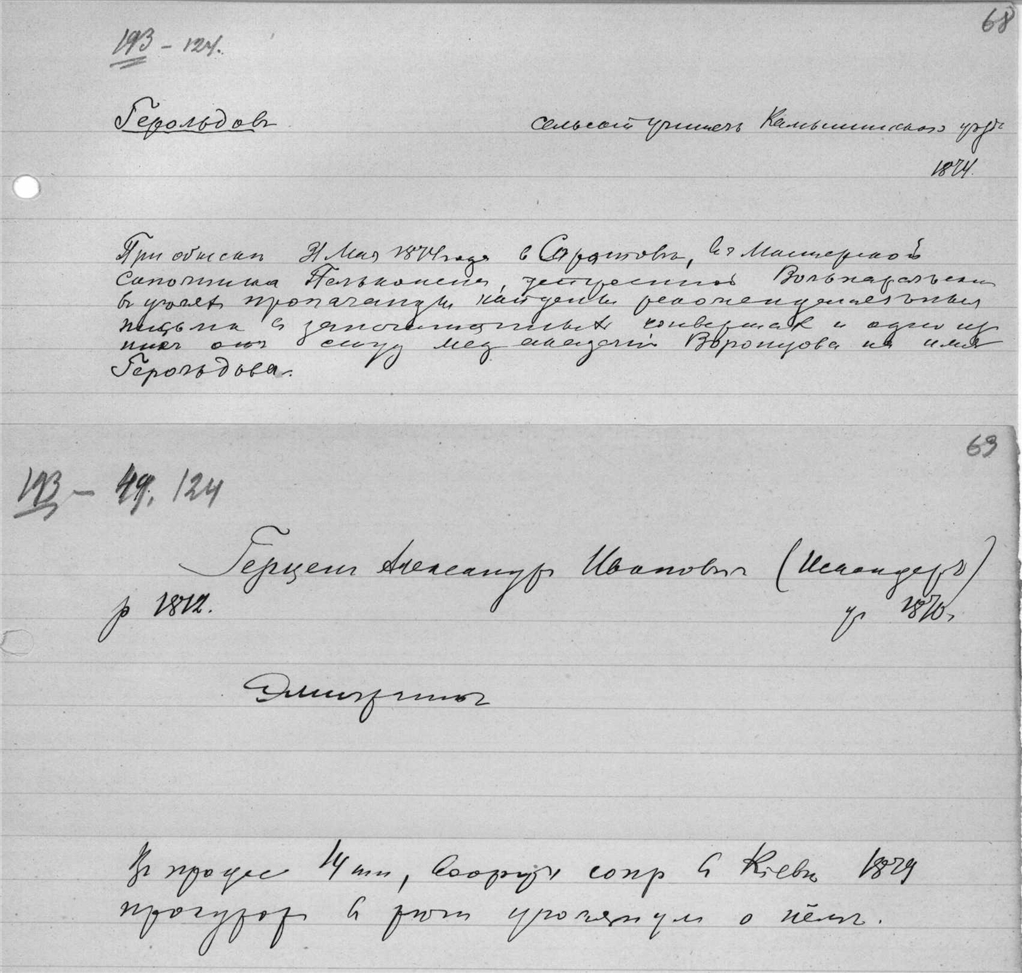 68
193 – 124.
Герольдовъ. сельскій учитель Камышинскаго уѣзд.
1874.
При обыскѣ 31 Мая 1874 года въ Саратовѣ, въ мастерской
сапожника Пельконена, устроенной Войнаральскимъ
въ цѣляхъ пропаганды найдены рекомендательныя
письма въ запечатанныхъ конвертахъ и одно из
нихъ отъ студ мед академіи Воронцова на имя
Герольдова.
69
193 – 49, 124
Герценъ Александръ Ивановичъ (Искандеръ)
р 1812. ум 1870.
Эмигрантъ
Въ процес 14 ти, вооруж сопр въ Кіевѣ 1879
прокурор въ рѣчи упомянулъ о нёмъ.